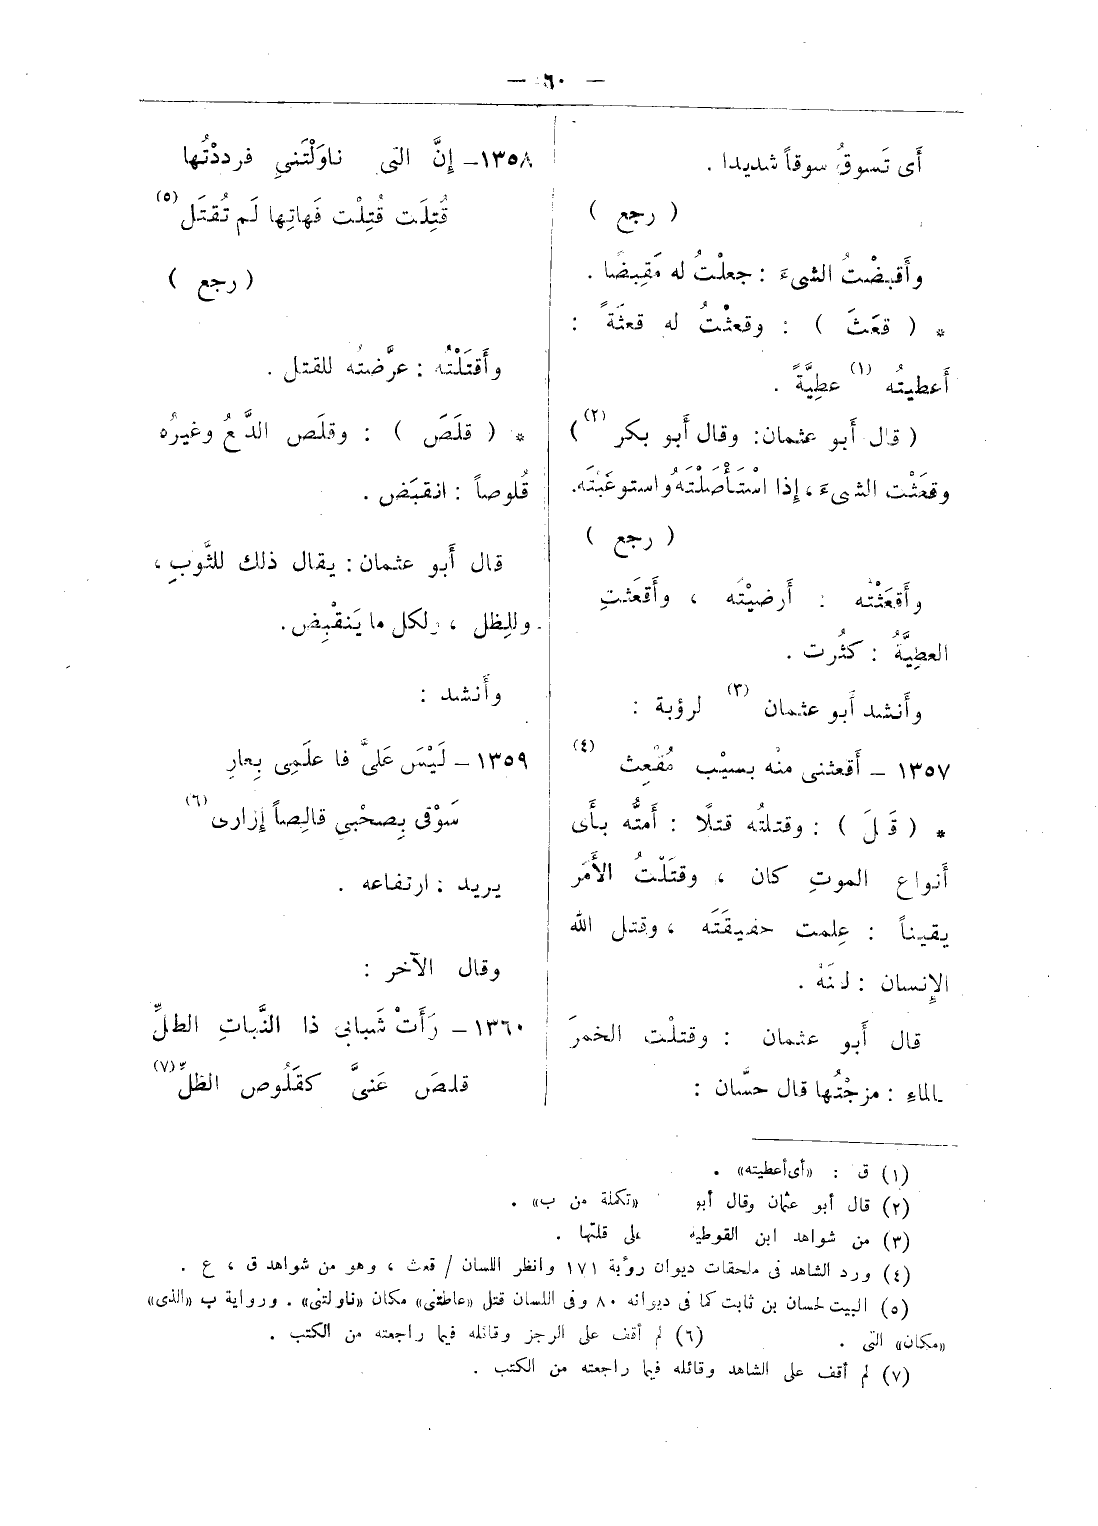 — ٦٠ —
أَى تَسوقُ سوقاً شديدا .
( رجع )
وأَقبضْتُ الشىءَ : جعلْتُ له مَقبِضًا .
* ( قَعَثَ ) : وقعثْتُ له قعثَةً :
أَعطيتُه (١) عطِيَّةً .
( قال أَبو عثمان: وقال أَبو بكر (٢) )
وقعَثْت الشىءَ ، إذا اسْتَأْصَلْتَهُ واستوعَبْتَه.
( رجع )
وأَقعَثْتُه : أَرضيْتَه ، وأَقعَثتِ
العطِيَّةُ : كثُرت .
وأَنشد أَبو عثمان (٣) لرؤبة :
١٣٥٧ – أَقعثنى منْه بسيْب مُقْعِث (٤)
* ( قَتَلَ ) : وقتلتُه قتلًا : أَمتُّه بأَى
أَنواع الموتِ كان ، وقتَلْتُ الأَمَر
يقيناً : عِلمت حقيقَتَه ، وقتل الله
الإِنسان : لعنَهُ .
قال أَبو عثمان : وقتلْت الخمرَ
بالماءِ : مزجْتُها قال حسَّان :
١٣٥٨– إنَّ التى ناوَلْتَنىِ فرددْتُها
قُتِلَت قُتِلْت فَهاتِها لَم تُقتَل (٥)
( رجع )
وأَقتَلْتُه : عرَّضتُه للقتل .
* ( قلَصَ ) : وقلَص الدَّمعُ وغيرُه
قُلوصاً : انقبَض .
قال أَبو عثمان : يقال ذلك للثَّوبِ ،
وللِظل ، ولكل ما يَنقْبِض.
وأَنشد :
١٣٥٩ – لَيْسَ عَلىَّ فا علَمِى بِعارِ
سَوْقى بِصحْبى قالِصاً إزارى (٦)
يريد : ارتفاعه .
وقال الآخر :
١٣٦٠ – رَأَتْ شَبابى ذا النَّباتِ الطلِّ
قلصَ عَنىَّ كقَلُوص الظلِّ (٧)
(١) ق : «أى أعطيته» .
(٢) قال أبو عثمان وقال أبو «تكملة من ب» .
(٣) من شواهد ابن القوطية على قلتها .
(٤) ورد الشاهد فى ملحقات ديوان رؤبة ١٧١ وانظر اللسان / قعث ، وهو من شواهد ق ، ع .
(٥) البيت لحسان بن ثابت كما فى ديوانه ٨٠ وفى اللسان قتل «عاطتنى» مكان «ناولتنى» . ورواية ب «الذى»
«مكان» التى . (٦) لم أقف على الرجز وقائله فيما راجعته من الكتب .
(٧) لم أقف على الشاهد وقائله فيما راجعته من الكتب .